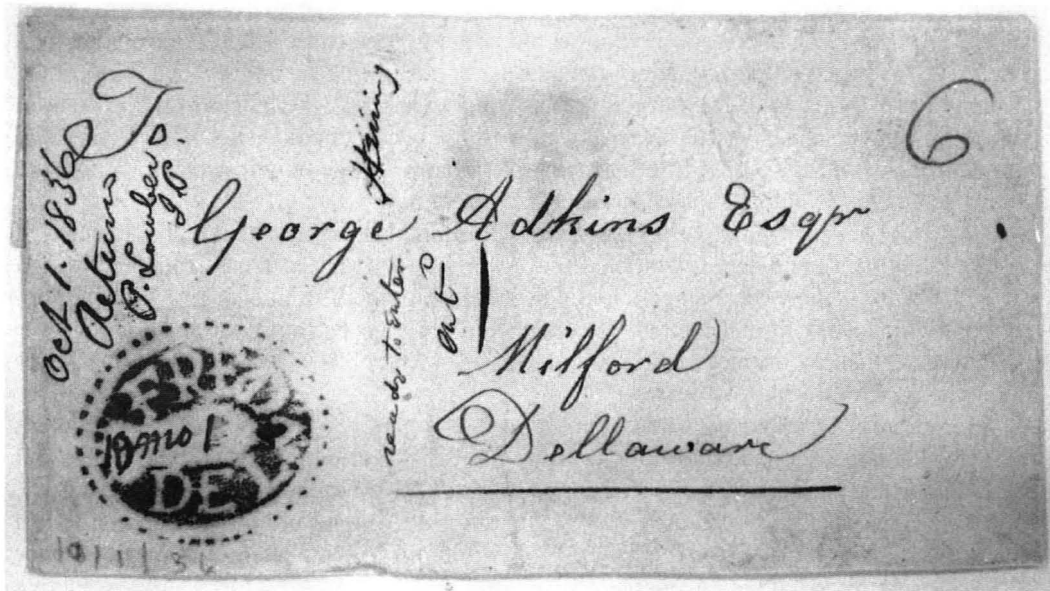 6
Oct. 1. 1836
Returns
P. Lowber
J.P.
George Adkins Esqr
Milford
Dellaware
ready to enter
FREDA
10 mo 1
DEL
10/1/36